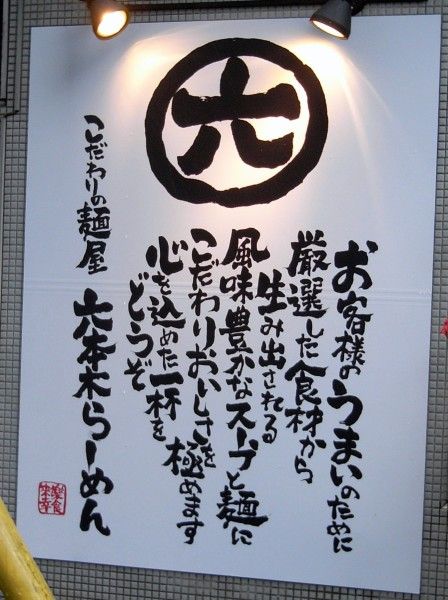 六
お客様のうまいのために
厳選した食材から
生み出される
風味豊かなスープと麺に
こだわりおいしさを極めます
心を込めた一杯を
どうぞ
こだわりの麺屋 六本木らーめん